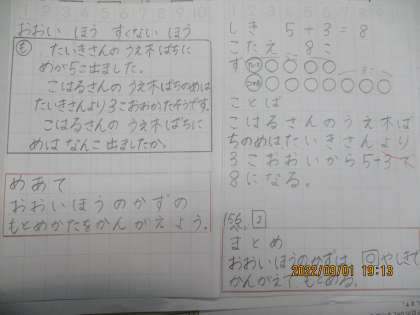 おおい ほう すくない ほう
も たいきさんの うえ木ばちに
めが5こ出ました。
こはるさんの うえ木ばちのめは
たいきさんより3こおおかったそうです。
こはるさんの うえ木ばちに
めは なんこ出ましたか。
めあて
おおいほうのかずの
もとめかたをかんがえよう。
しき 5+3=8
こたえ 8こ
ず
ことば
こはるさんのうえ木ば
ちのめはたいきさんより
3こおおいから5+3で
8になる。
まとめ
おおいほうのかずは、
かんがえて もとめる。
2022/09/01 19:13